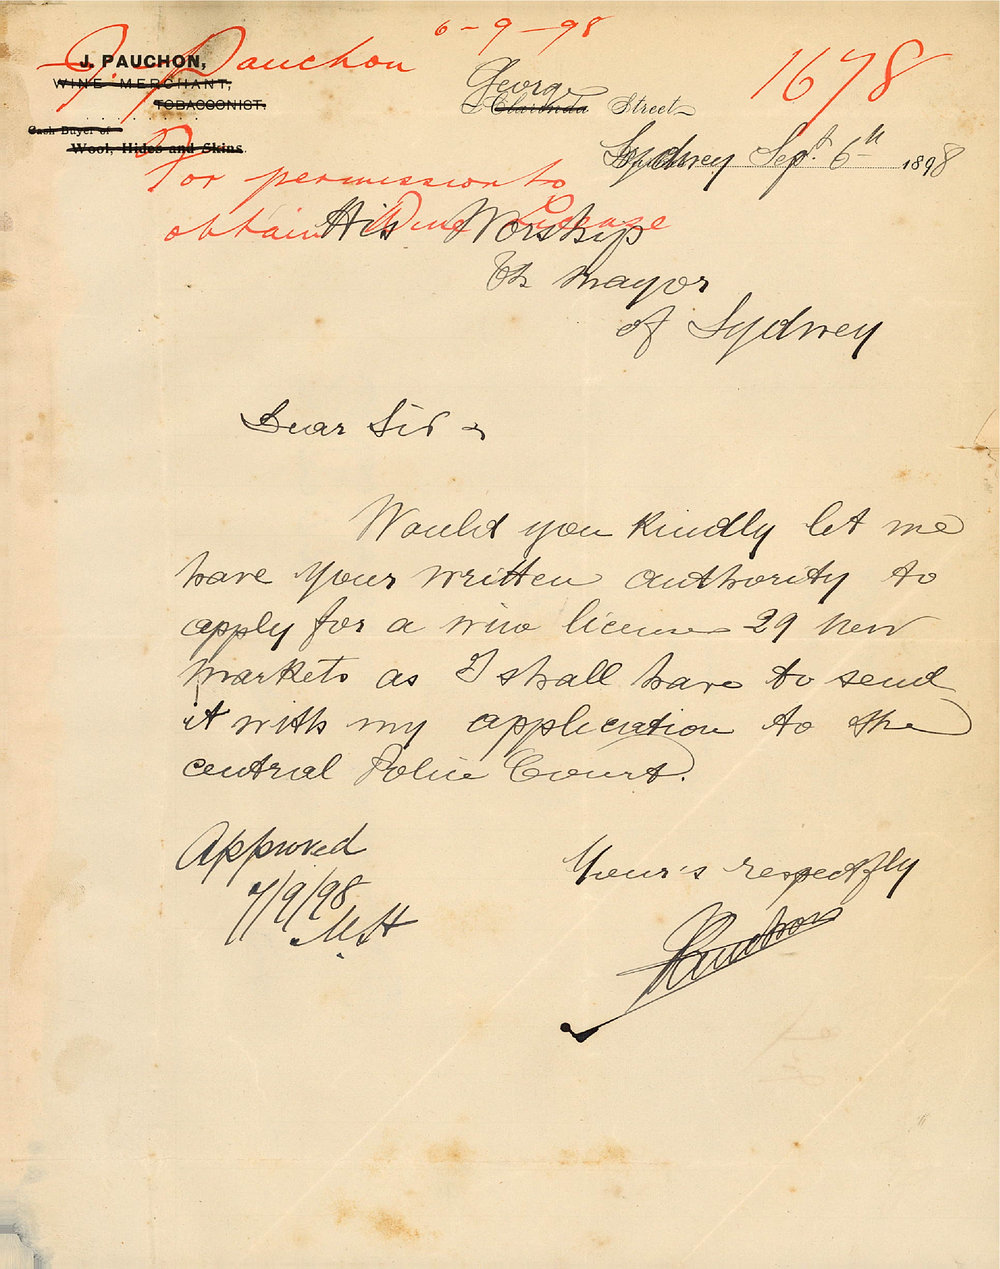 6-9-98
J. Pauchon
1678
J. PAUCHON,
WINE MERCHANT,
TOBACCONIST.
Cash Buyer of
Wool, Hides and Skins.
George
Clarinda Street
Sydney Sept. 6th 1898
For permission to
obtain Wine License
His Worship
The Mayor
of Sydney
Dear Sir
Would you kindly let me
have your written authority to
apply for a wine license 29 new
markets as I shall have to send
it with my application to the
central Police Court.
Approved
7/9/98
Your's respectfly
JPauchon